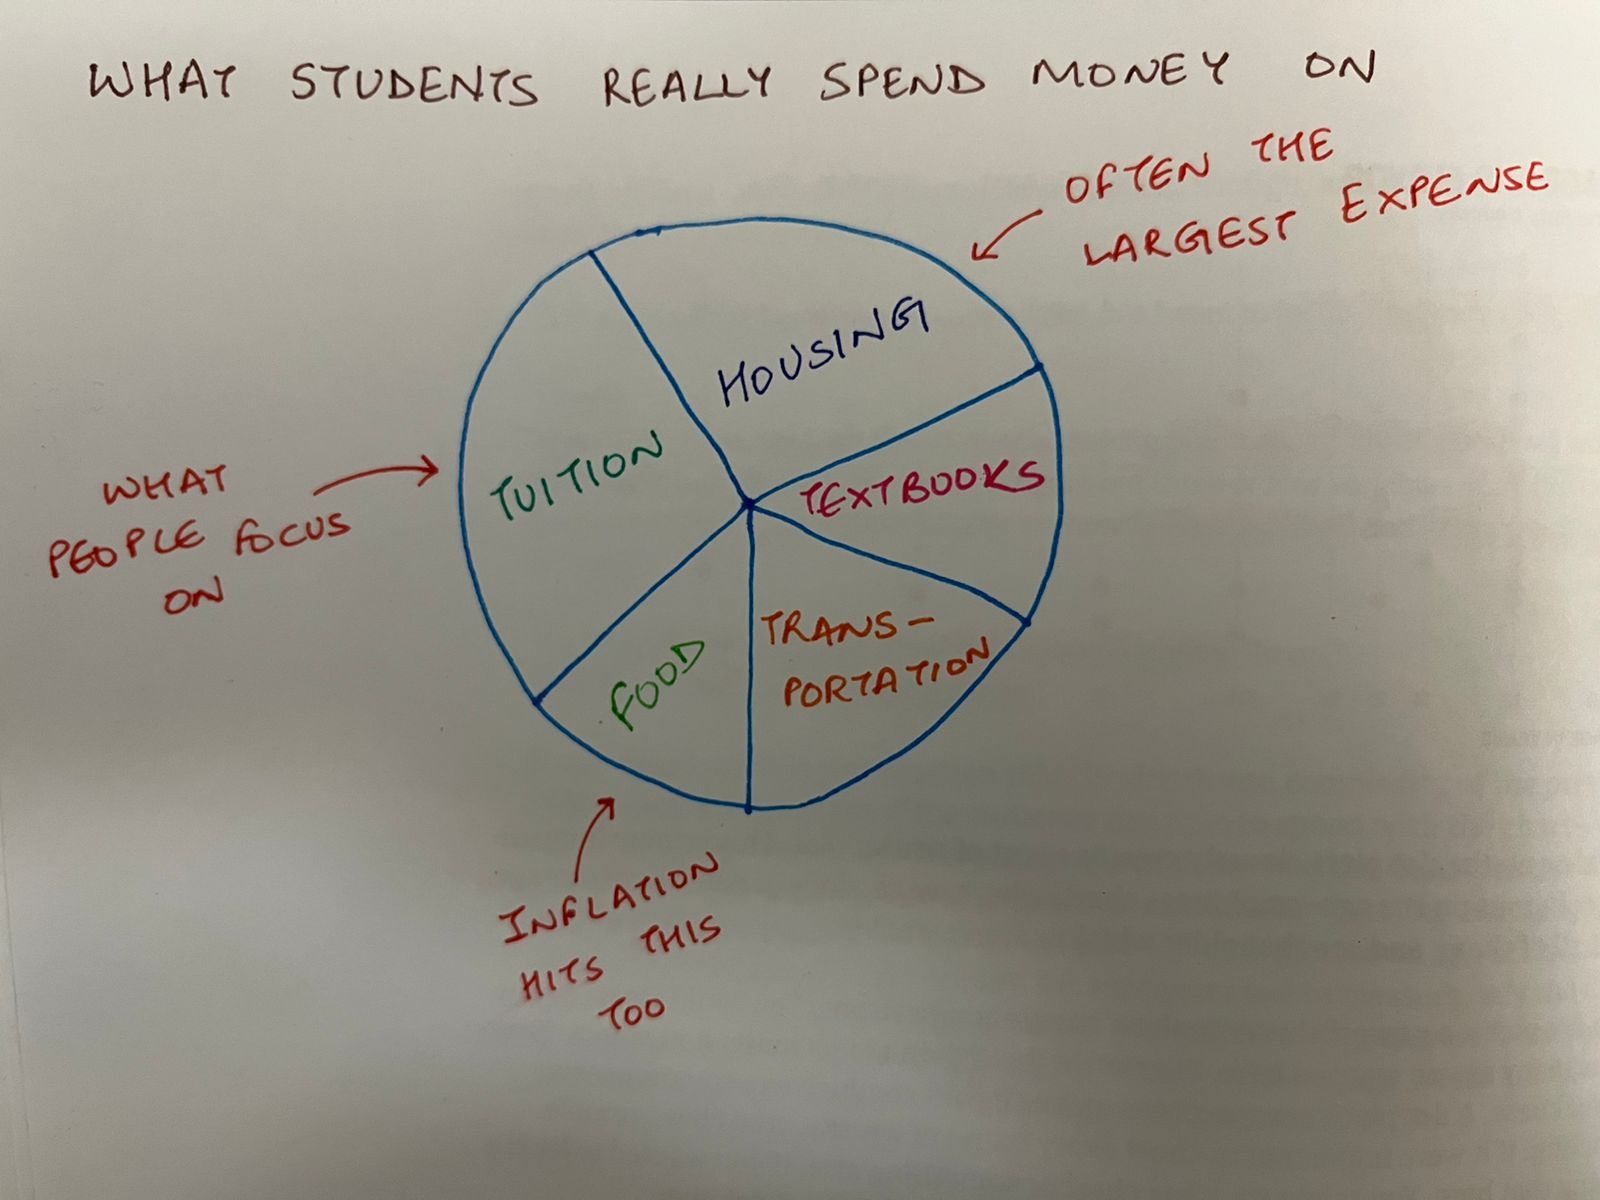 WHAT STUDENTS REALLY SPEND MONEY ON
OFTEN THE
LARGEST EXPENSE
HOUSING
TUITION
TEXTBOOKS
WHAT
PEOPLE FOCUS
ON
TRANS-
PORTATION
FOOD
INFLATION
HITS THIS
TOO